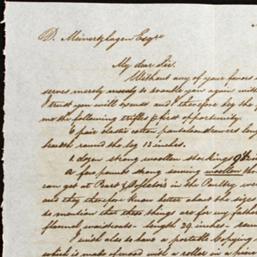 D. Meinertzhagen Esqre
My dear Sir.
Without any of your favors
serves merely to trouble you again
I trust you will and I therefore beg the
me the following trifles first opportunity.
6 pair elastic cotton pantaloon drawers long
round the leg 13 inches.
1 dozen strong woollen stockings
A few pounds strong sewing woollen
can get at in the Poultry
and they therefore know better about the
to mention that these things are for my father
flannel waistcoats - length 29 inches
I wish also to have a portable Copying
which is made with a roller in a